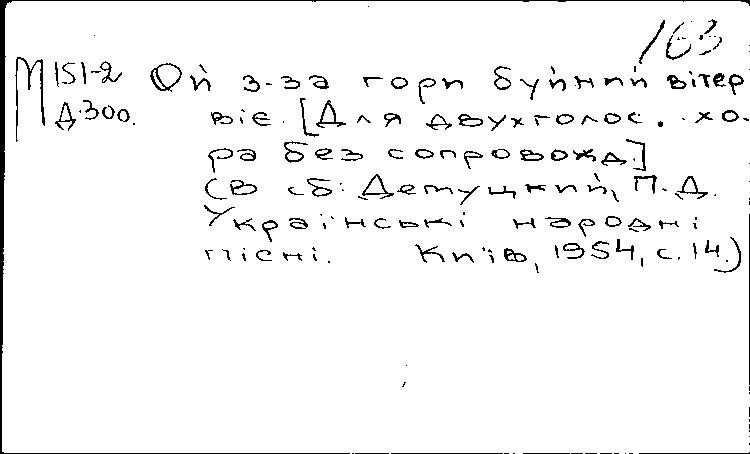 163
М 151-2 Ой з-за гори буйний вітер
Д.300. віє. [Для двухголос. хо-
ра без сопровожд.]
(В сб: Демуцкий, П.Д.
Українські народні
пісні. Київ, 1954, с.14.)